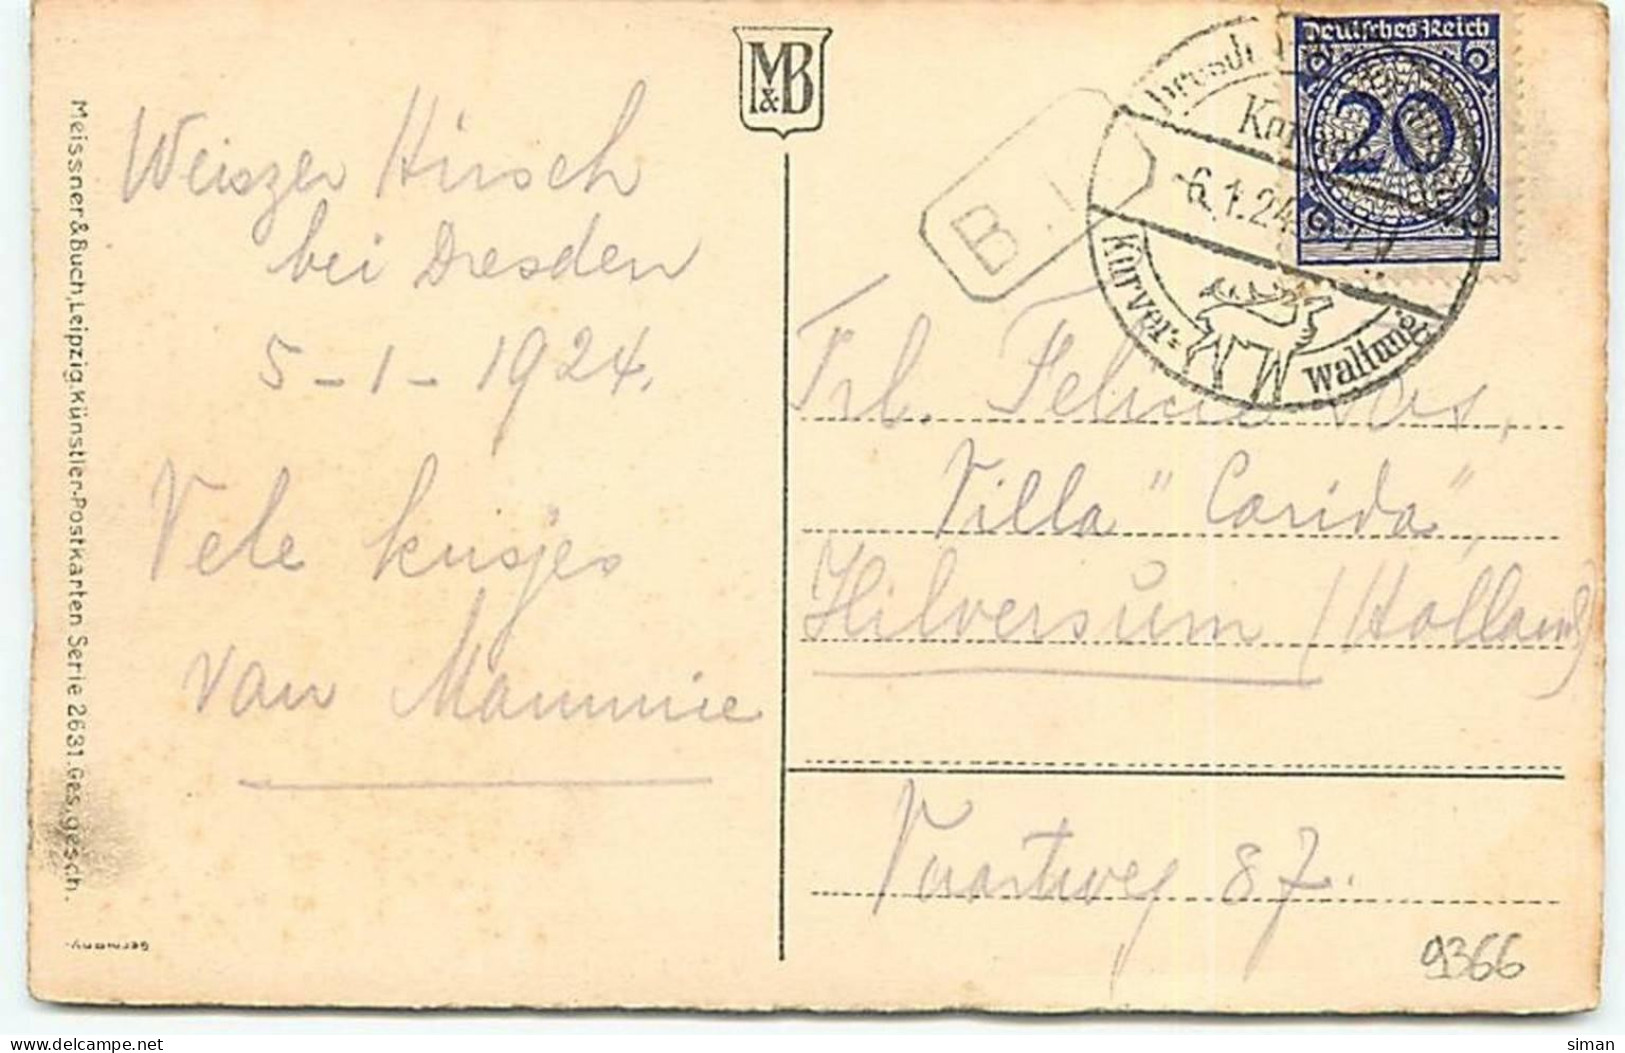 M&B
Weiszer Hirsch
bei Dresden
5-1-1924.
Vele kusjes
van Mammie
Meissner&Buch,Leipzig.Künstler-Postkarten Serie 2631.Ges.gesch.
Germany.
Deutsches Reich
20
6.1.24
Kurver=
waltung
B.
Frl. Felicie Vos,
Villa "Carida",
Hilversum (Holland)
Vaartweg 87.
9366
siman
delcampe.net